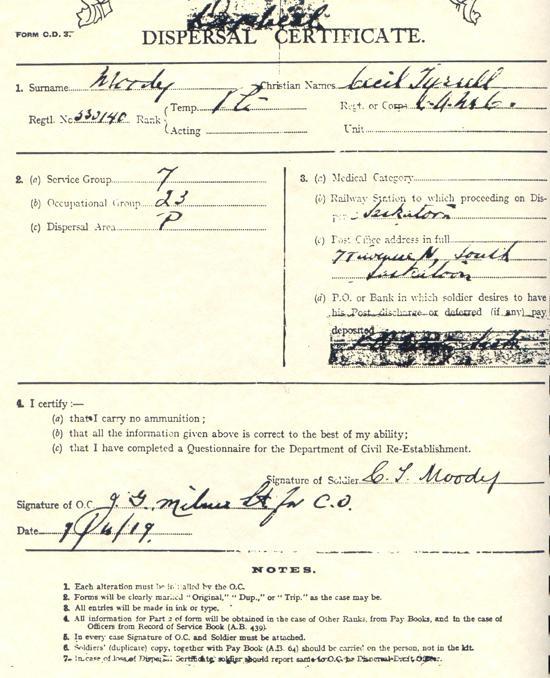 FORM C.D. 3.
DISPERSAL CERTIFICATE.
1. Surname Moody Christian Names Cecil Tyrell
Regtl. No 530140 Rank Temp. Pte Regt. or Corps
Acting Unit
2. (a) Service Group 7
(b) Occupational Group 23
(c) Dispersal Area P
3. (a) Medical Category
(b) Railway Station to which proceeding on Dis-
Saskatoon
(c) Post Office address in full
Avenue N. South
Saskatoon
(d) P.O. or Bank in which soldier desires to have
his Post-discharge or deferred (if any) pay
deposited
4. I certify :—
(a) that I carry no ammunition ;
(b) that all the information given above is correct to the best of my ability;
(c) that I have completed a Questionnaire for the Department of Civil Re-Establishment.
Signature of Soldier C. T. Moody
Signature of O.C. J. G. Milner Lt for C.O.
Date
NOTES.
1. Each alteration must be initialled by the O.C.
2. Forms will be clearly marked "Original," "Dup.," or "Trip." as the case may be.
3. All entries will be made in ink or type.
4. All information for Part 2 of form will be obtained in the case of Other Ranks, from Pay Books, and in the case of
Officers from Record of Service Book (A.B. 439).
5. In every case Signature of O.C. and Soldier must be attached.
6. Soldiers' (duplicate) copy, together with Pay Book (A.B. 64) should be carried on the person, not in the kit.
7. In case of loss of Dispersal Certificate, soldier should report same to O.C. he Dispersal Unit Officer.